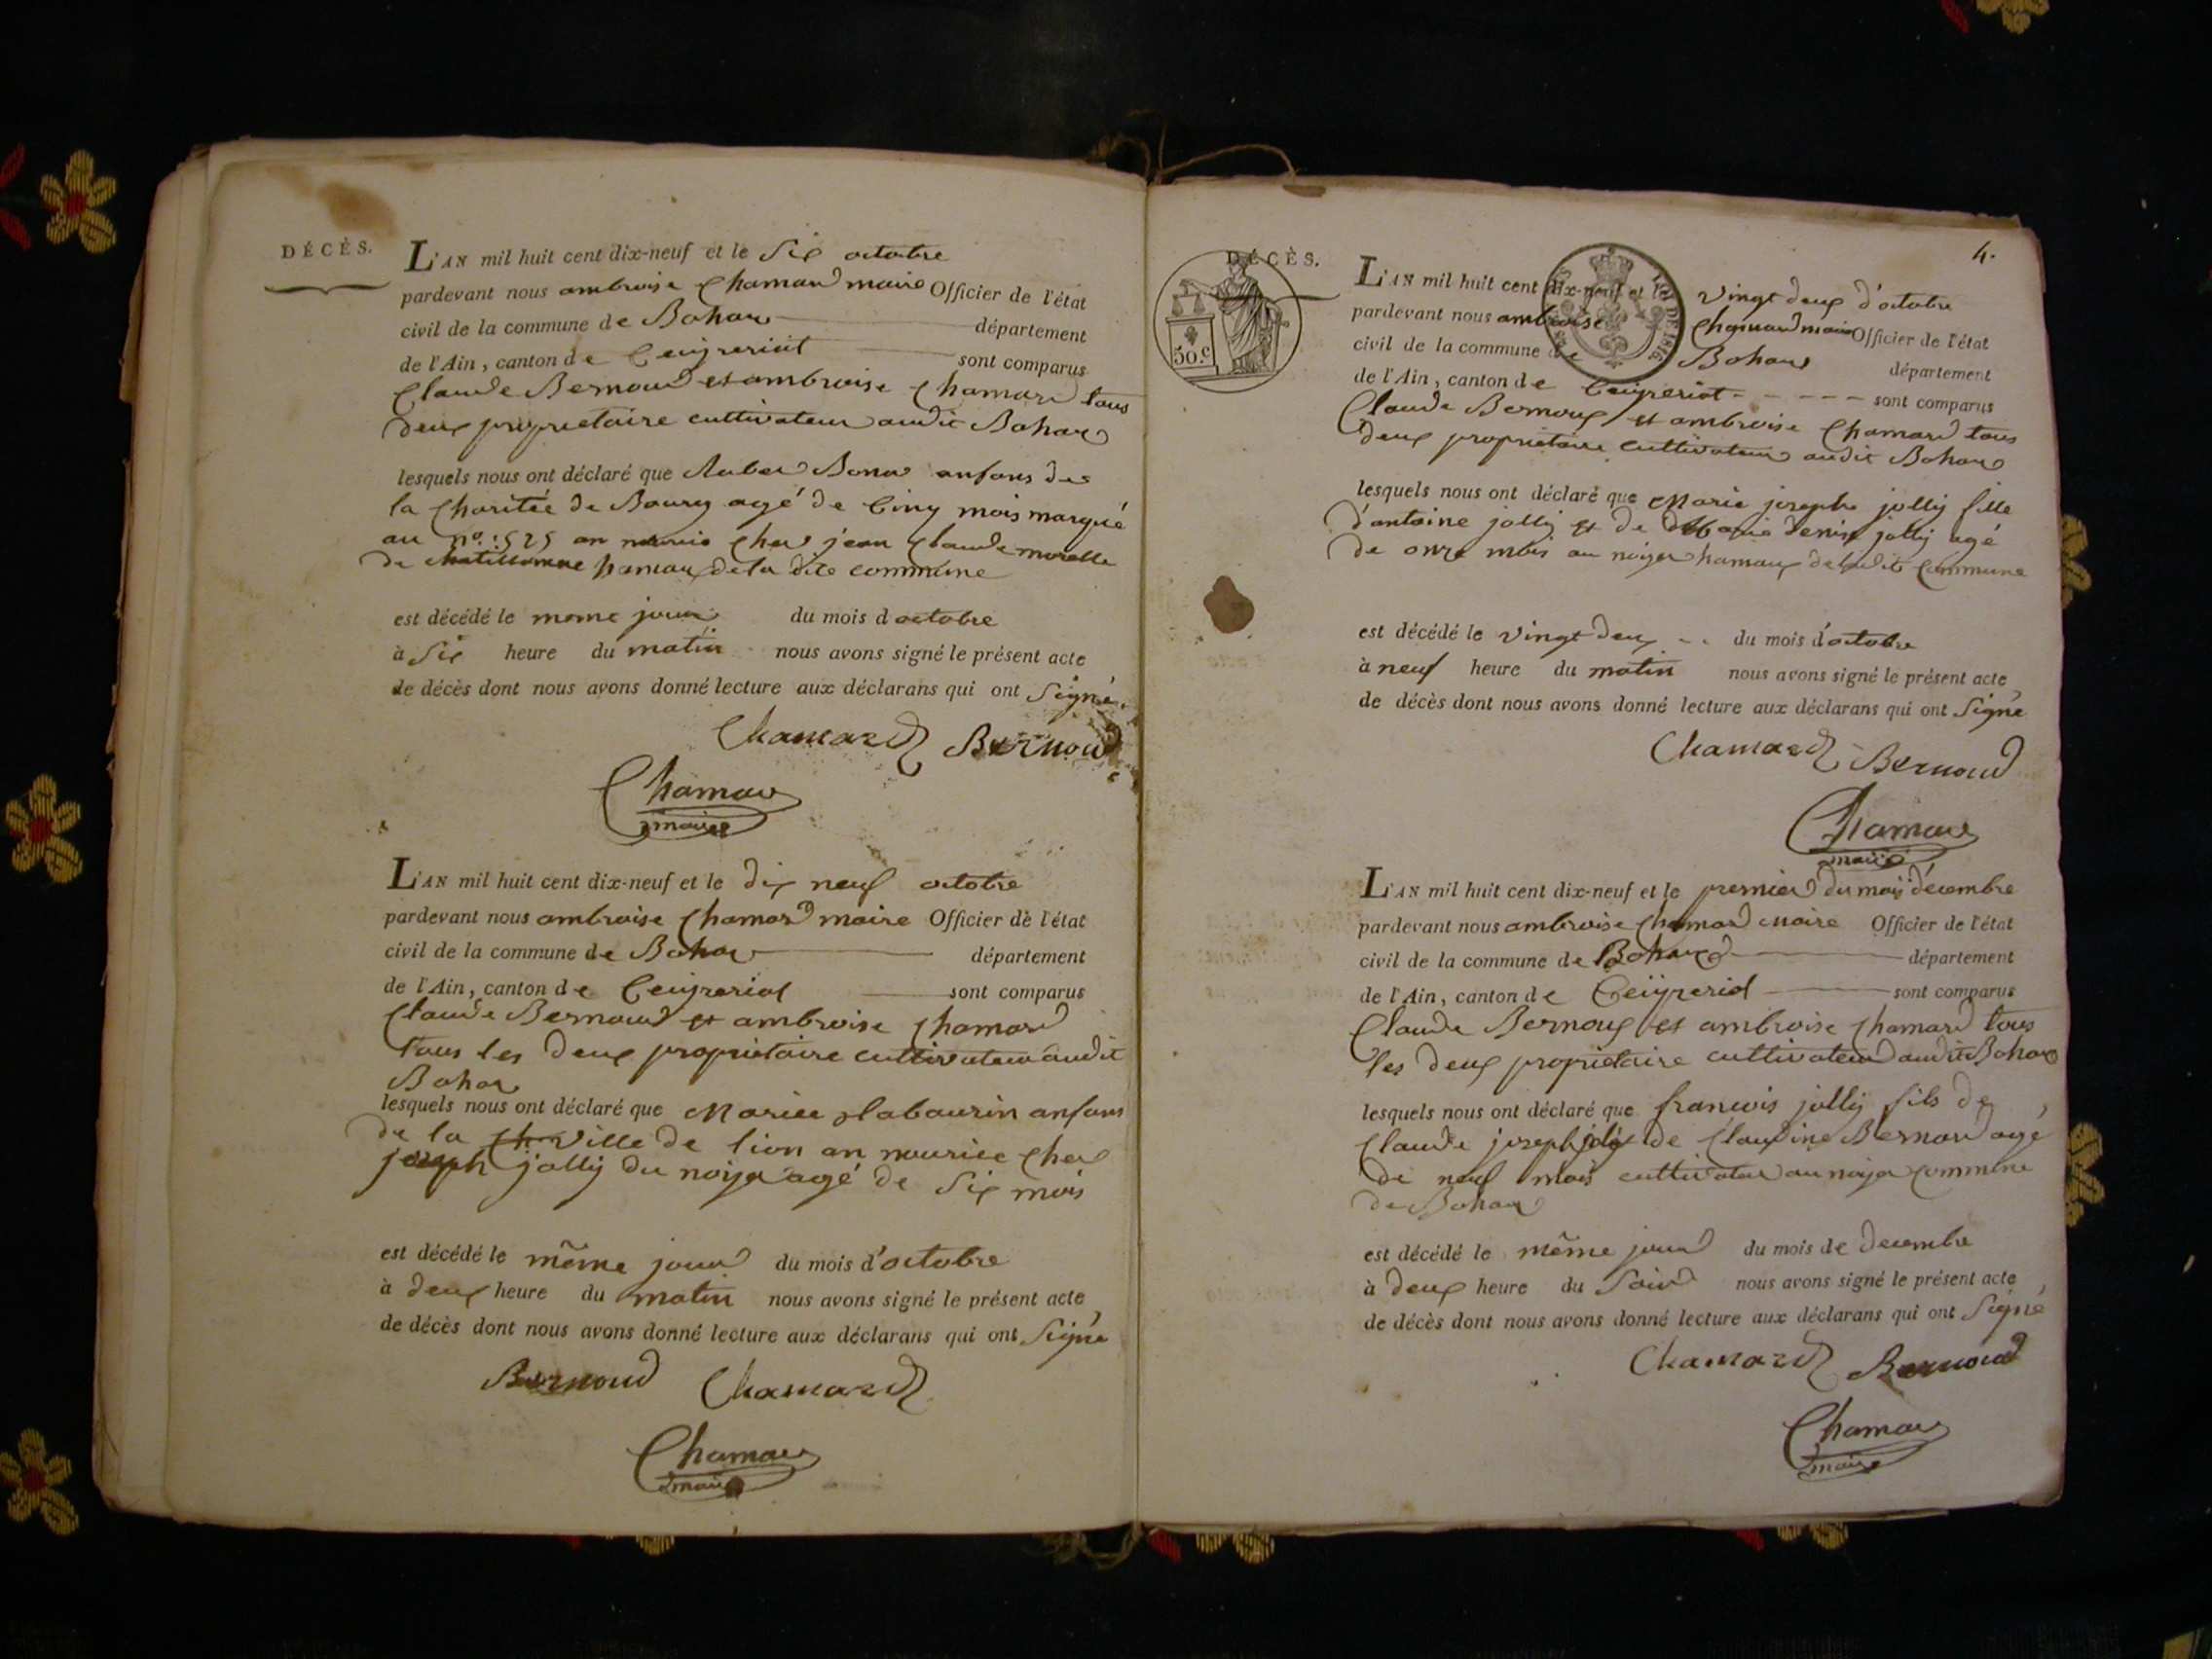 DÉCÈS.
L'AN mil huit cent dix-neuf et le Six octobre
pardevant nous ambroise Chamard maire Officier de l'état
civil de la commune de Bohas département
de l'Ain, canton de Ceyzeriat sont comparus
Claude Bernoud et ambroise Chamard tous
deux proprietaire cultivateur audit Bohas
lesquels nous ont déclaré que anfans de
la Charitée de Bourg agé de Cinq mois marqué
au n°. 525 an nourrice chez jean Claude morelle
de hamaux de la dite commune
est décédé le meme jour du mois d octobre
à Six heure du matin nous avons signé le présent acte
de décès dont nous avons donné lecture aux déclarans qui ont Signé.
Chamard Bernoud
Chamard
maire
L'AN mil huit cent dix-neuf et le dix neuf octobre
pardevant nous ambroise Chamard maire Officier de l'état
civil de la commune de Bohas département
de l'Ain, canton de Ceyzeriat sont comparus
Claude Bernoud et ambroise Chamard
tous les deux proprietaire cultivateur audit
Bohas
lesquels nous ont déclaré que Mariee anfans
de la ville de lion an nourice chez
joseph jolly du noyer agé de Six mois
est décédé le même jour du mois d'octobre
à deux heure du matin nous avons signé le présent acte
de décès dont nous avons donné lecture aux déclarans qui ont Signé
Bernoud Chamard
Chamard
maire
4.
DÉCÈS.
30.c
DE 1816
L'AN mil huit cent dix-neuf et le vingt deux d'octobre
pardevant nous ambroise Chamard maire Officier de l'état
civil de la commune de Bohas département
de l'Ain, canton de Ceyzeriat - - - - - sont comparus
Claude Bernoux et ambroise Chamard tous
deux proprietaire cultivateur audit Bohas
lesquels nous ont déclaré que Marie josephe jolly fille
d'antoine jolly et de Marie denise jolly agé
de onze mois au noyer hamaux de ladite Commune
est décédé le vingt deux - - du mois d'octobre
à neuf heure du matin nous avons signé le présent acte
de décès dont nous avons donné lecture aux déclarans qui ont Signé
Chamard Bernoud
Chamard
maire
L'AN mil huit cent dix-neuf et le premier du mois décembre
pardevant nous ambroise Chamard maire Officier de l'état
civil de la commune de Bohas département
de l'Ain, canton de Ceyzeriat sont comparus
Claude Bernoux et ambroise Chamard tous
les deux proprietaire cultivateur audit Bohas
lesquels nous ont déclaré que francois jolly fils de
Claude joseph jolly et de Claudine Bernard agé
de neuf mois cultivateur au noyer commune
de Bohas
est décédé le même jour du mois de decembre
à deux heure du Soir nous avons signé le présent acte
de décès dont nous avons donné lecture aux déclarans qui ont Signé
Chamard Bernoud
Chamard
maire